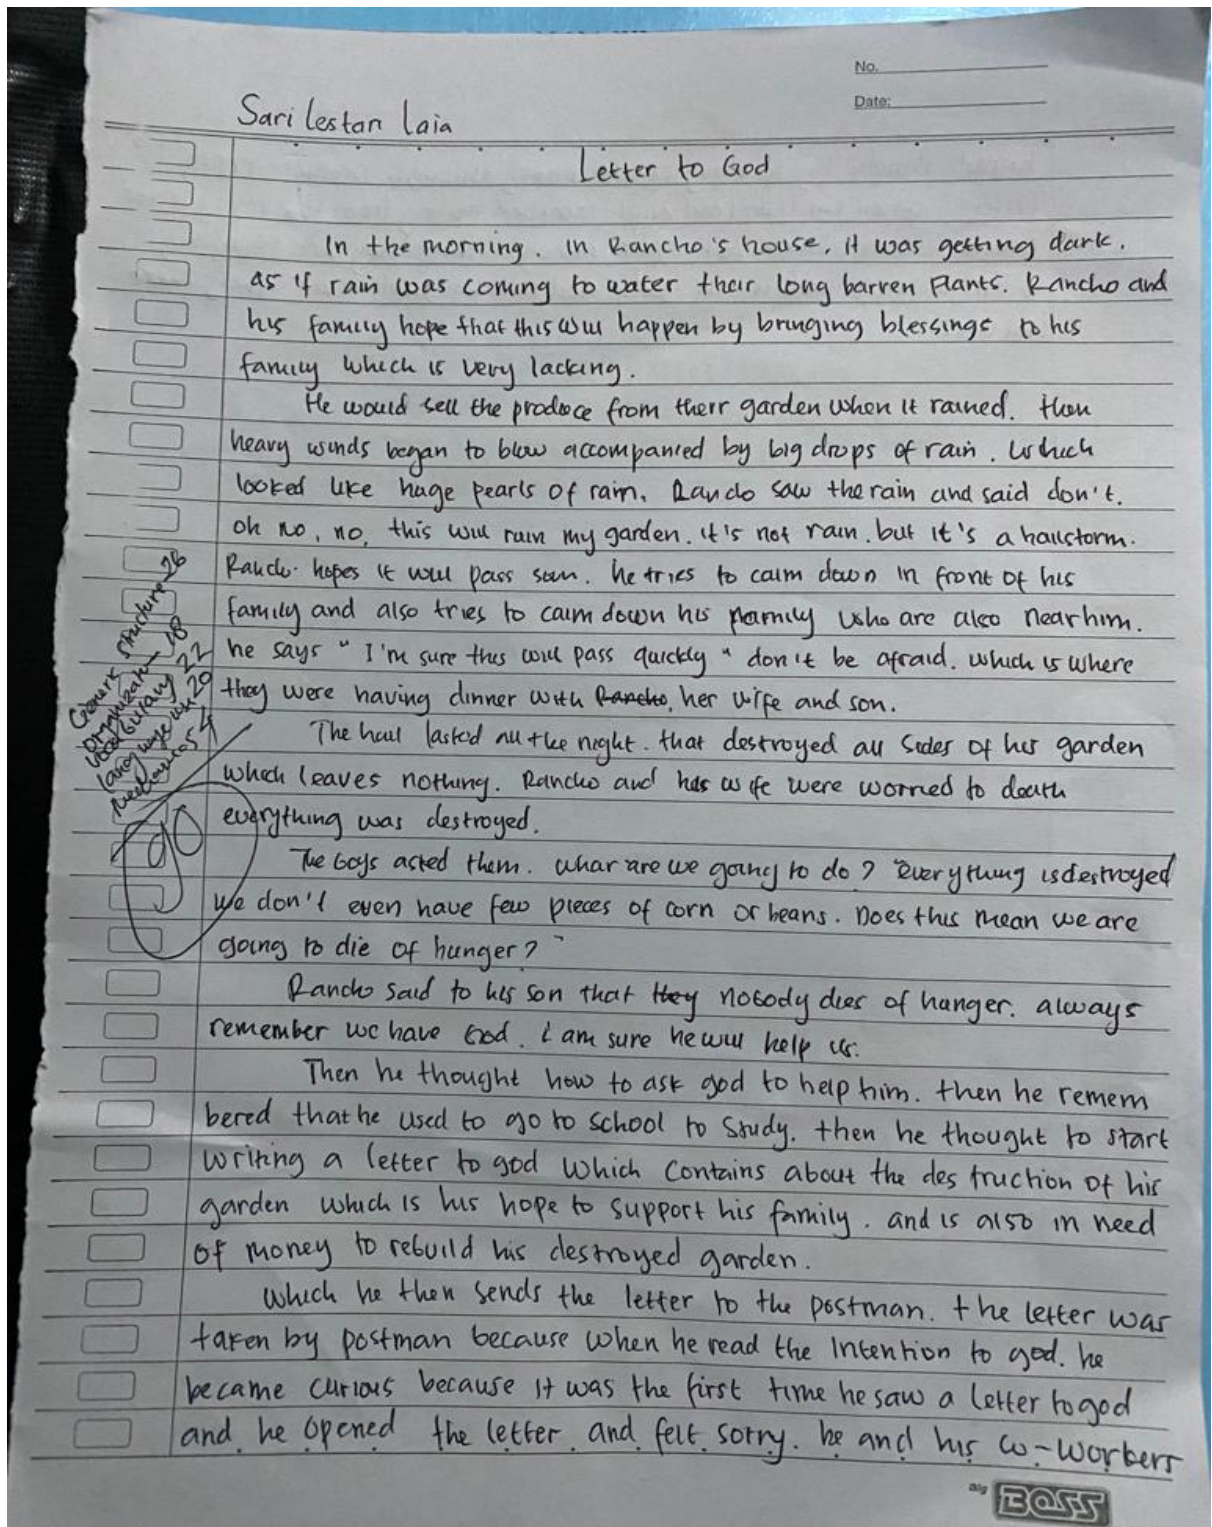 No.
Date:
Sari lestari laia
Letter to God
In the morning. in Rancho's house, it was getting dark.
as if rain was coming to water their long barren Plants. Rancho and
his family hope that this will happen by bringing blessings to his
family which is very lacking.
He would sell the produce from their garden when it rained. then
heavy winds began to blow accompanied by big drops of rain. Which
looked like huge pearls of rain. Rancho saw the rain and said don't.
oh no, no, this will ruin my garden. it's not rain. but it's a hailstorm.
Rancho. hopes it will pass soon. he tries to calm down in front of his
family and also tries to calm down his family who are also near him.
he says " I'm sure this will pass quickly " don't be afraid. which is where
they were having dinner with Rancho, her wife and son.
The hail lasted all the night. that destroyed all sides of his garden
which leaves nothing. Rancho and his wife were worried to death
everything was destroyed.
The boys asked them. what are we going to do? "everything is destroyed
we don't even have few pieces of corn or beans. Does this mean we are
going to die of hunger? "
Rancho said to his son that they nobody dies of hunger. always
remember we have God. i am sure he will help us.
Then he thought how to ask god to help him. then he remem
bered that he used to go to school to study. then he thought to start
writing a letter to god which contains about the des truction of his
garden which is his hope to support his family. and is also in need
of money to rebuild his destroyed garden.
Which he then sends the letter to the postman. the letter was
taken by postman because when he read the intention to god. he
became curious because it was the first time he saw a letter to god
and he opened the letter and felt sorry. he and his co-workers
Generic structure 26
organization 18
Vocabulary 22
language use 20
Mechanics 4
90
Big BOSS